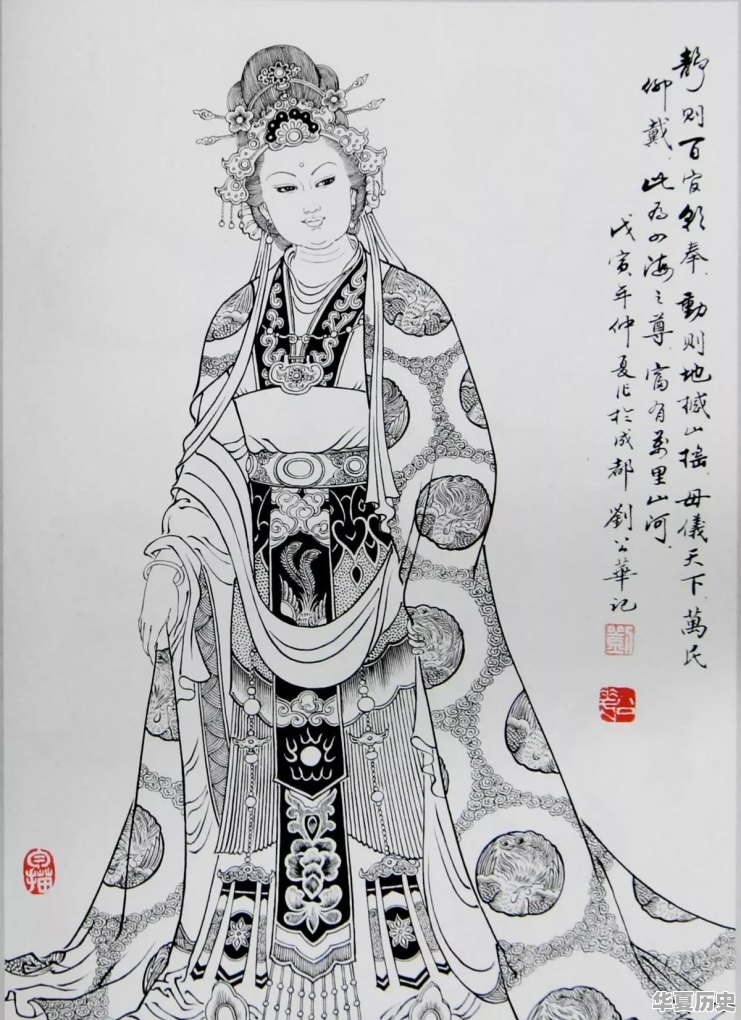 靜则百官朝奉、動则地撼山摇、母儀天下、萬民
仰戴、此为四海之尊、富有萬里山河、
戊寅年仲夏作於成都 劉公華記
白描
华夏历史